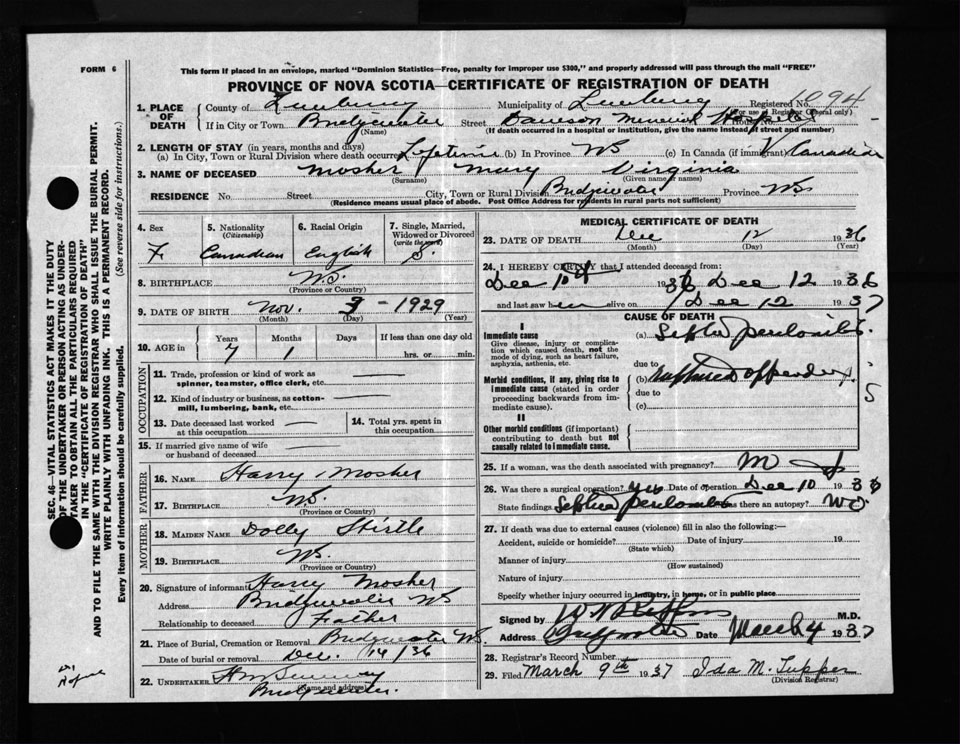 FORM 6
This form if placed in an envelope, marked "Dominion Statistics—Free, penalty for improper use $300," and properly addressed will pass through the mail "FREE"
PROVINCE OF NOVA SCOTIA—CERTIFICATE OF REGISTRATION OF DEATH
1. PLACE OF DEATH County of Lunenburg Municipality of Lunenburg Registered No. 1094
(For use of Registrar General only)
If in City or Town Bridgewater Street Dawson Memorial Hospital House No.
(Name) (If death occurred in a hospital or institution, give the name instead of street and number)
2. LENGTH OF STAY (in years, months and days)
(a) In City, Town or Rural Division where death occurred Lifetime (b) In Province NS (c) In Canada (if immigrant) Canadian
3. NAME OF DECEASED Mosher Mary Virginia
(Surname) (Given name or names)
RESIDENCE No. Street City, Town or Rural Division Bridgewater Province NS
(Residence means usual place of abode. Post Office Address for residents in rural parts not sufficient)
4. Sex 5. Nationality (Citizenship) 6. Racial Origin 7. Single, Married, Widowed or Divorced (write the word)
F. Canadian English S.
8. BIRTHPLACE N.S.
(Province or Country)
9. DATE OF BIRTH Nov. 3 - 1929
(Month) (Day) (Year)
10. AGE in Years Months Days If less than one day old
7 1 hrs. or min.
OCCUPATION
11. Trade, profession or kind of work as spinner, teamster, office clerk, etc.
12. Kind of industry or business, as cotton-mill, lumbering, bank, etc.
13. Date deceased last worked at this occupation 14. Total yrs. spent in this occupation
15. If married give name of wife or husband of deceased
FATHER
16. NAME Harry Mosher
17. BIRTHPLACE N.S.
(Province or Country)
MOTHER
18. MAIDEN NAME Dolly
19. BIRTHPLACE N.S.
(Province or Country)
20. Signature of informant Harry Mosher
Address Bridgewater NS
Relationship to deceased Father
21. Place of Burial, Cremation or Removal Bridgewater N.S.
Date of burial or removal Dec. 14/36
22. UNDERTAKER
(Name and address)
Bridgewater.
MEDICAL CERTIFICATE OF DEATH
23. DATE OF DEATH Dec 12 1936
(Month) (Day) (Year)
24. I HEREBY CERTIFY that I attended deceased from:
Dec 10th 1936 Dec 12 1936
and last saw her alive on Dec 12 1937
CAUSE OF DEATH
I
Immediate cause
Give disease, injury or complication which caused death, not the mode of dying, such as heart failure, asphyxia, asthenia, etc.
(a) Septic peritonitis.
due to
Morbid conditions, if any, giving rise to immediate cause (stated in order proceeding backwards from immediate cause).
(b) ruptured appendix.
due to
(c)
II
Other morbid conditions (if important) contributing to death but not causally related to immediate cause.
25. If a woman, was the death associated with pregnancy?
26. Was there a surgical operation? yes Date of operation Dec 10 1936
State findings Septic peritonitis Was there an autopsy? No
27. If death was due to external causes (violence) fill in also the following:—
Accident, suicide or homicide? Date of injury 19
(State which)
Manner of injury
(How sustained)
Nature of injury
Specify whether injury occurred in industry, in home, or in public place
Signed by M.D.
Address Bridgewater Date March 4 1937
28. Registrar's Record Number
29. Filed March 9th 1937 Ida M. Tupper
(Division Registrar)
SEC. 46—VITAL STATISTICS ACT MAKES IT THE DUTY OF THE UNDERTAKER OR PERSON ACTING AS UNDERTAKER TO OBTAIN ALL THE PARTICULARS REQUIRED IN THE "CERTIFICATE OF REGISTRATION OF DEATH" AND TO FILE THE SAME WITH THE DIVISION REGISTRAR WHO SHALL ISSUE THE BURIAL PERMIT.
WRITE PLAINLY WITH UNFADING INK. THIS IS A PERMANENT RECORD.
Every item of information should be carefully supplied. (See reverse side for instructions.)